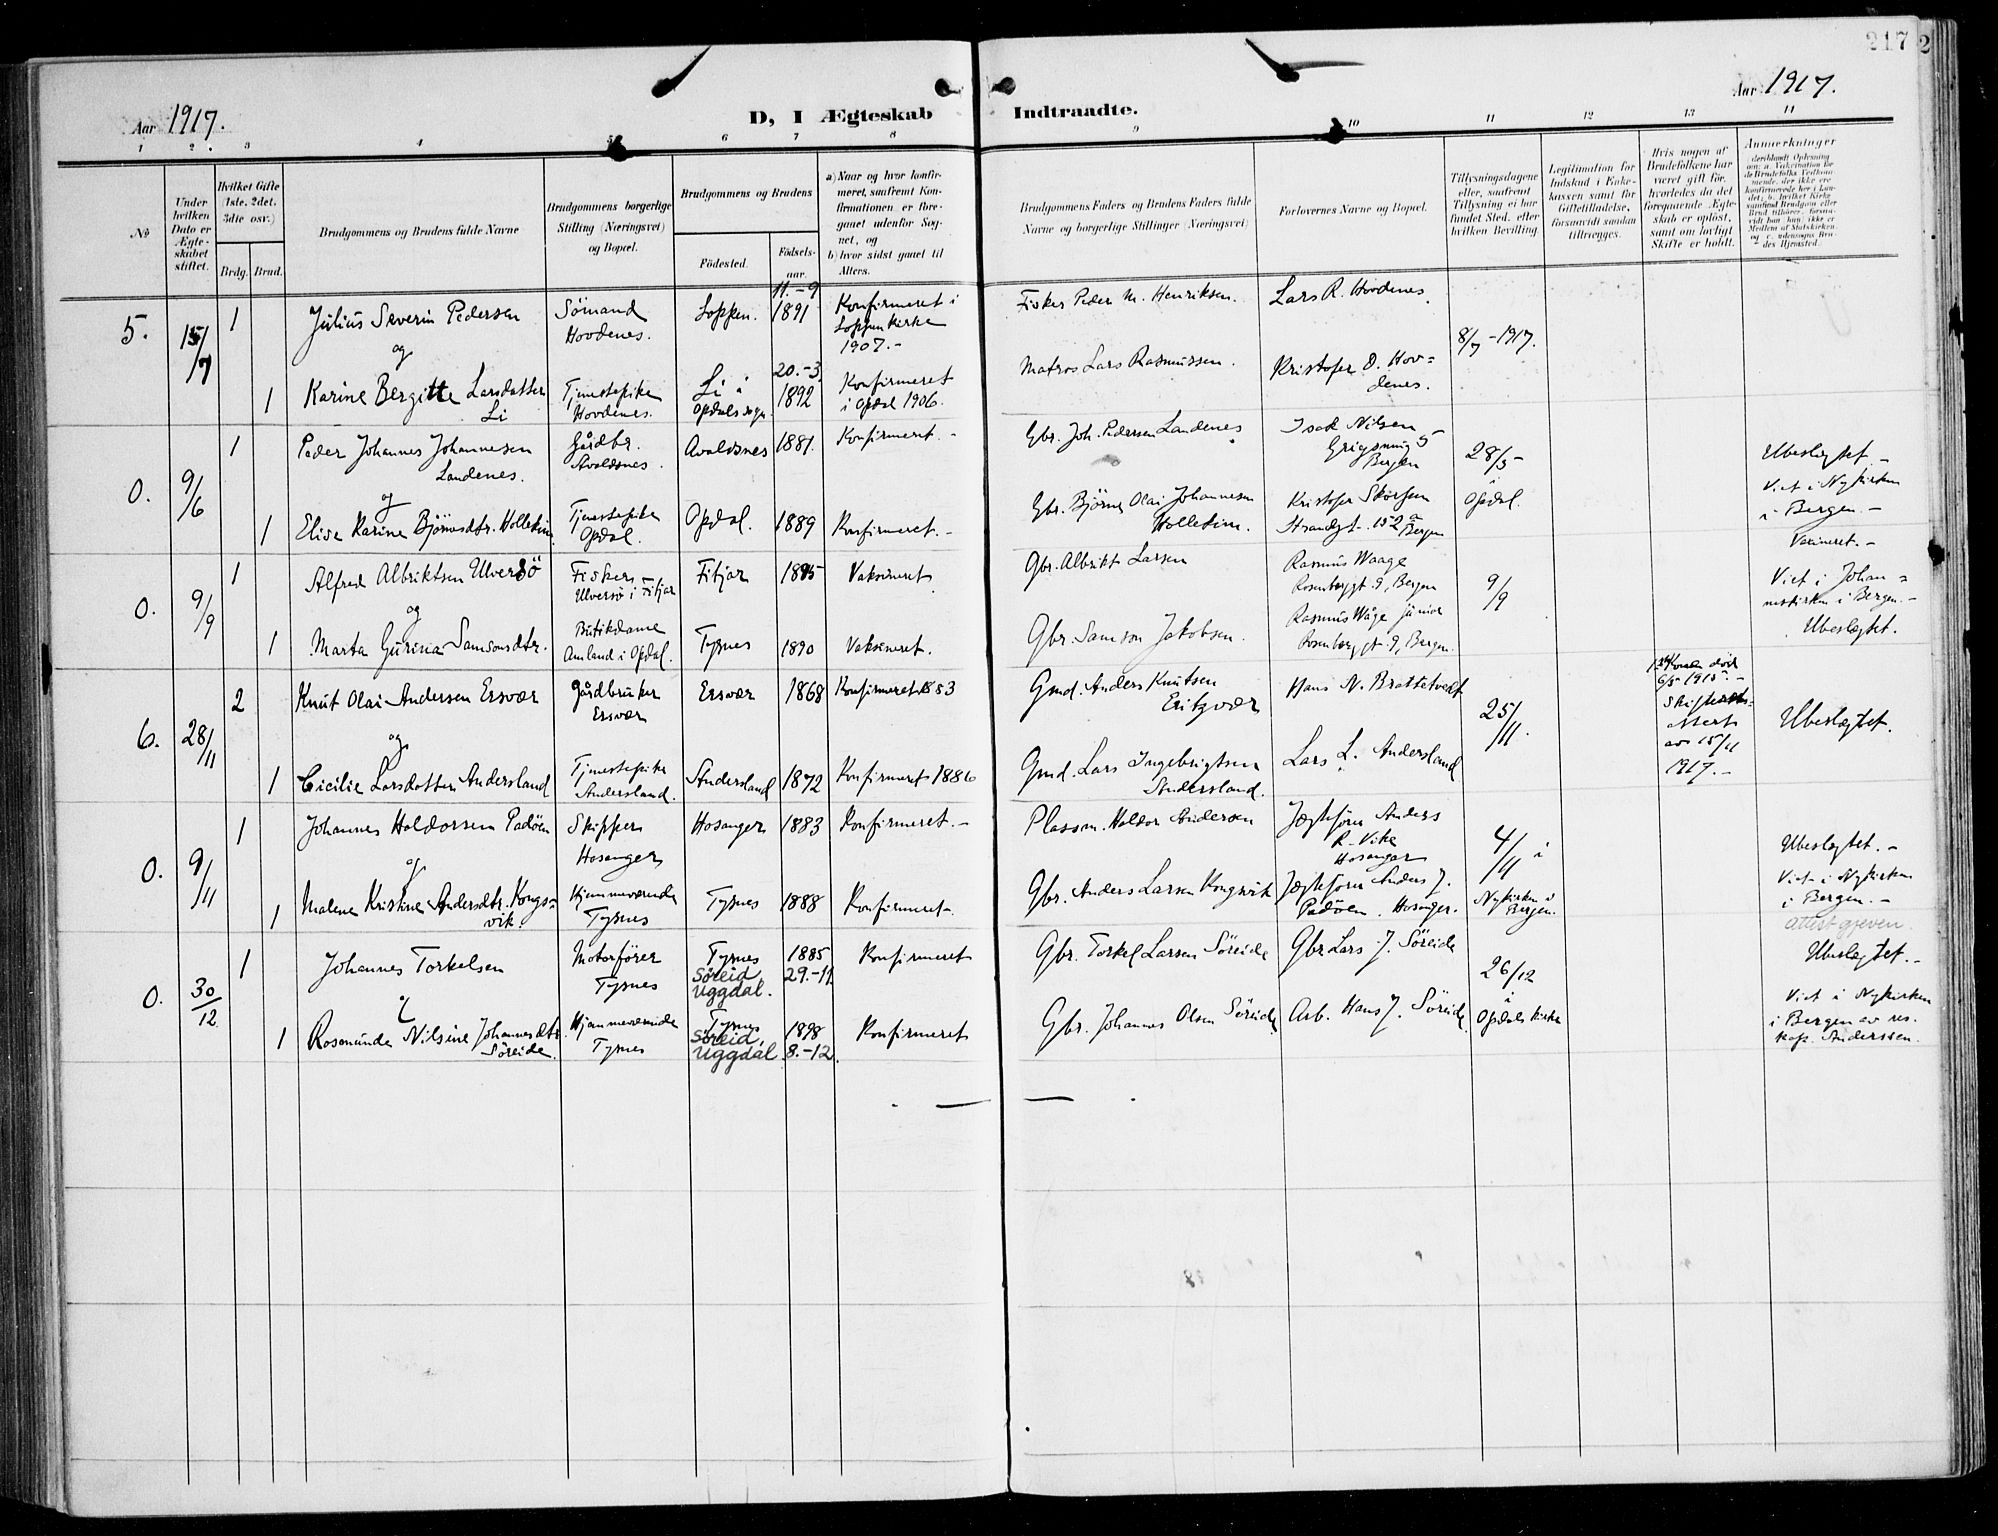 217
2
Aar 1917.
D, I Ægteskab Indtraadte.
Aar 1917.
1 2 3 4 5 6 7 8 9 10 11 12 13 14
No
Under hvilken Dato er Ægteskabet stiftet.
Hvilket Gifte (1ste, 2det, 3die osv.)
Brdg. Brud.
Brudgommens og Brudens fulde Navne
Brudgommens borgerlige Stilling (Næringsvei) og Bopæl.
Brudgommens og Brudens
Fødested.
Fødselsaar.
a) Naar og hvor konfirmeret, saafremt Konfirmationen er foregaaet udenfor Sognet, og
b) hvor sidst gaaet til Alters.
Brudgommens Faders og Brudens Faders fulde Navne og borgerlige Stillinger (Næringsvei)
Forlovernes Navne og Bopæl.
Tillysningsdagene eller, saafremt Tillysning ei har fundet Sted, efter hvilken Bevilling.
Legitimation for Indskud i Enkekassen samt for Giftetilladelse, forsaavidt saadan tiltrænges.
Hvis nogen af Brudefolkene har været gift før, hvorledes da det foregaaende Ægteskab er opløst, samt om lovligt Skifte er holdt.
Anmerkninger
5.
15/7
1
Julius Severin Pedersen
og
Sömand
Hovdenes.
Loppen.
11.-9
1891
Konfirmeret i
Loppen kirke
1907.-
Fisker Peder M. Henriksen.
Lars R. Hovdenes.
8/7-1917.
1
Karine Bergitte Larsdatter
Li
Tjenestepike
Hovdenes.
Li i
Opdals sogn
20.-3.
1892
Konfirmeret
i Opdal 1906.
Matros Lars Rasmussen.
Kristofer O. Hov=
denes.
0.
9/6
1
Peder Johannes Johannesen
Landenes.
og
Gårdbr.
Avaldsnes.
Avaldsnes
1881.
Konfirmeret.-
Gbr. Joh. Pedersen Landenes
Isak Nilsen
Bergen
28/5-
Opdal.
Ubeslegtet.-
Viet i Nykirken
i Bergen.-
1
Elise Karine Björnsdtr. Hollekim
Tjenestepike
Opdal.
Opdal.
1889
Konfirmeret.-
Gbr. Björne Olai Johannesen
Hollekim.
Kristofer Skorpen
Strandgt. 152 a
Bergen
Vaxineret.-
0.
9/9
1
Alfred Albriktsen Ulversö
og
Fisker-
Ulversö i Fitjar
Fitjar
1895
Vaksineret
Gbr. Albrikt Larsen
Rasmus Waage
Rosenbergt. 9, Bergen
9/9
Viet i Johan=
neskirken i Bergen.-
Ubeslegtet.
1
Marta Gurina Samsonsdtr.
Butikdame
Amland i Opdal.
Tysnes
1890
Vaksineret.
Gbr. Samson Jakobsen.
Rasmus Wåge junior
Rosenbergt. 9, Bergen.
6.
28/11
2
Knut Olai Andersen Ersvær
og
Gårdbruker
Ersvær
Ersvær
1868
Konfirmeret 1883
Gmd. Anders Knutsen
Eritzvær
Hans N. Brattetvedt
25/11.
1ste Kone död
6/5 1915.-
Skifteat=
attest
av 15/11
1917.-
Ubeslegtet.
1
Cicilie Larsdatter Andersland
Tjenestepike
Andersland.
Andersland
1872
Konfirmeret 1886
Gmd. Lars Ingebrigtsen
Andersland.
Lars L. Andersland
0.
9/11
1
Johannes Haldorsen Padöen
og
Skipper
Hosanger
Hosanger
1883
Konfirmeret.-
Plassm. Haldor Andersen
Jægtförer Anders
R. Vike
Hosanger
4/11 i
Nykirken i
Bergen.
Ubeslegtet.-
Viet i Nykirken
i Bergen.-
Attest gjeven
1
Malene Kristine Andersdtr. Kongs=
vik.
Hjemmeværende
Tysnes
Tysnes
1888
Konfirmeret.
Gbr. Anders Larsen Kongsvik
Jægtförer Anders J.
Padöen. Hosanger.
0.
30/12
1
Johannes Torkelsen
&
Motorförer
Tysnes
Tysnes
Søreid,
Uggdal.
1885
29.-11.
Konfirmeret
Gbr. Torkel Larsen Söreide
Gbr Lars J. Söreide
26/12
i
Opdals kirke
Ubeslegtet.-
Viet i Nykirken
i Bergen av res.
kap. Anderssen.
1
Rosamunda Nilsine Johannesdtr.
Söreide.
Hjemmeværende
Tysnes
Tysnes
Søreid,
Uggdal
1898
8.-12.
Konfirmeret
Gbr. Johannes Olsen Söreide
Arb. Hans J. Söreide